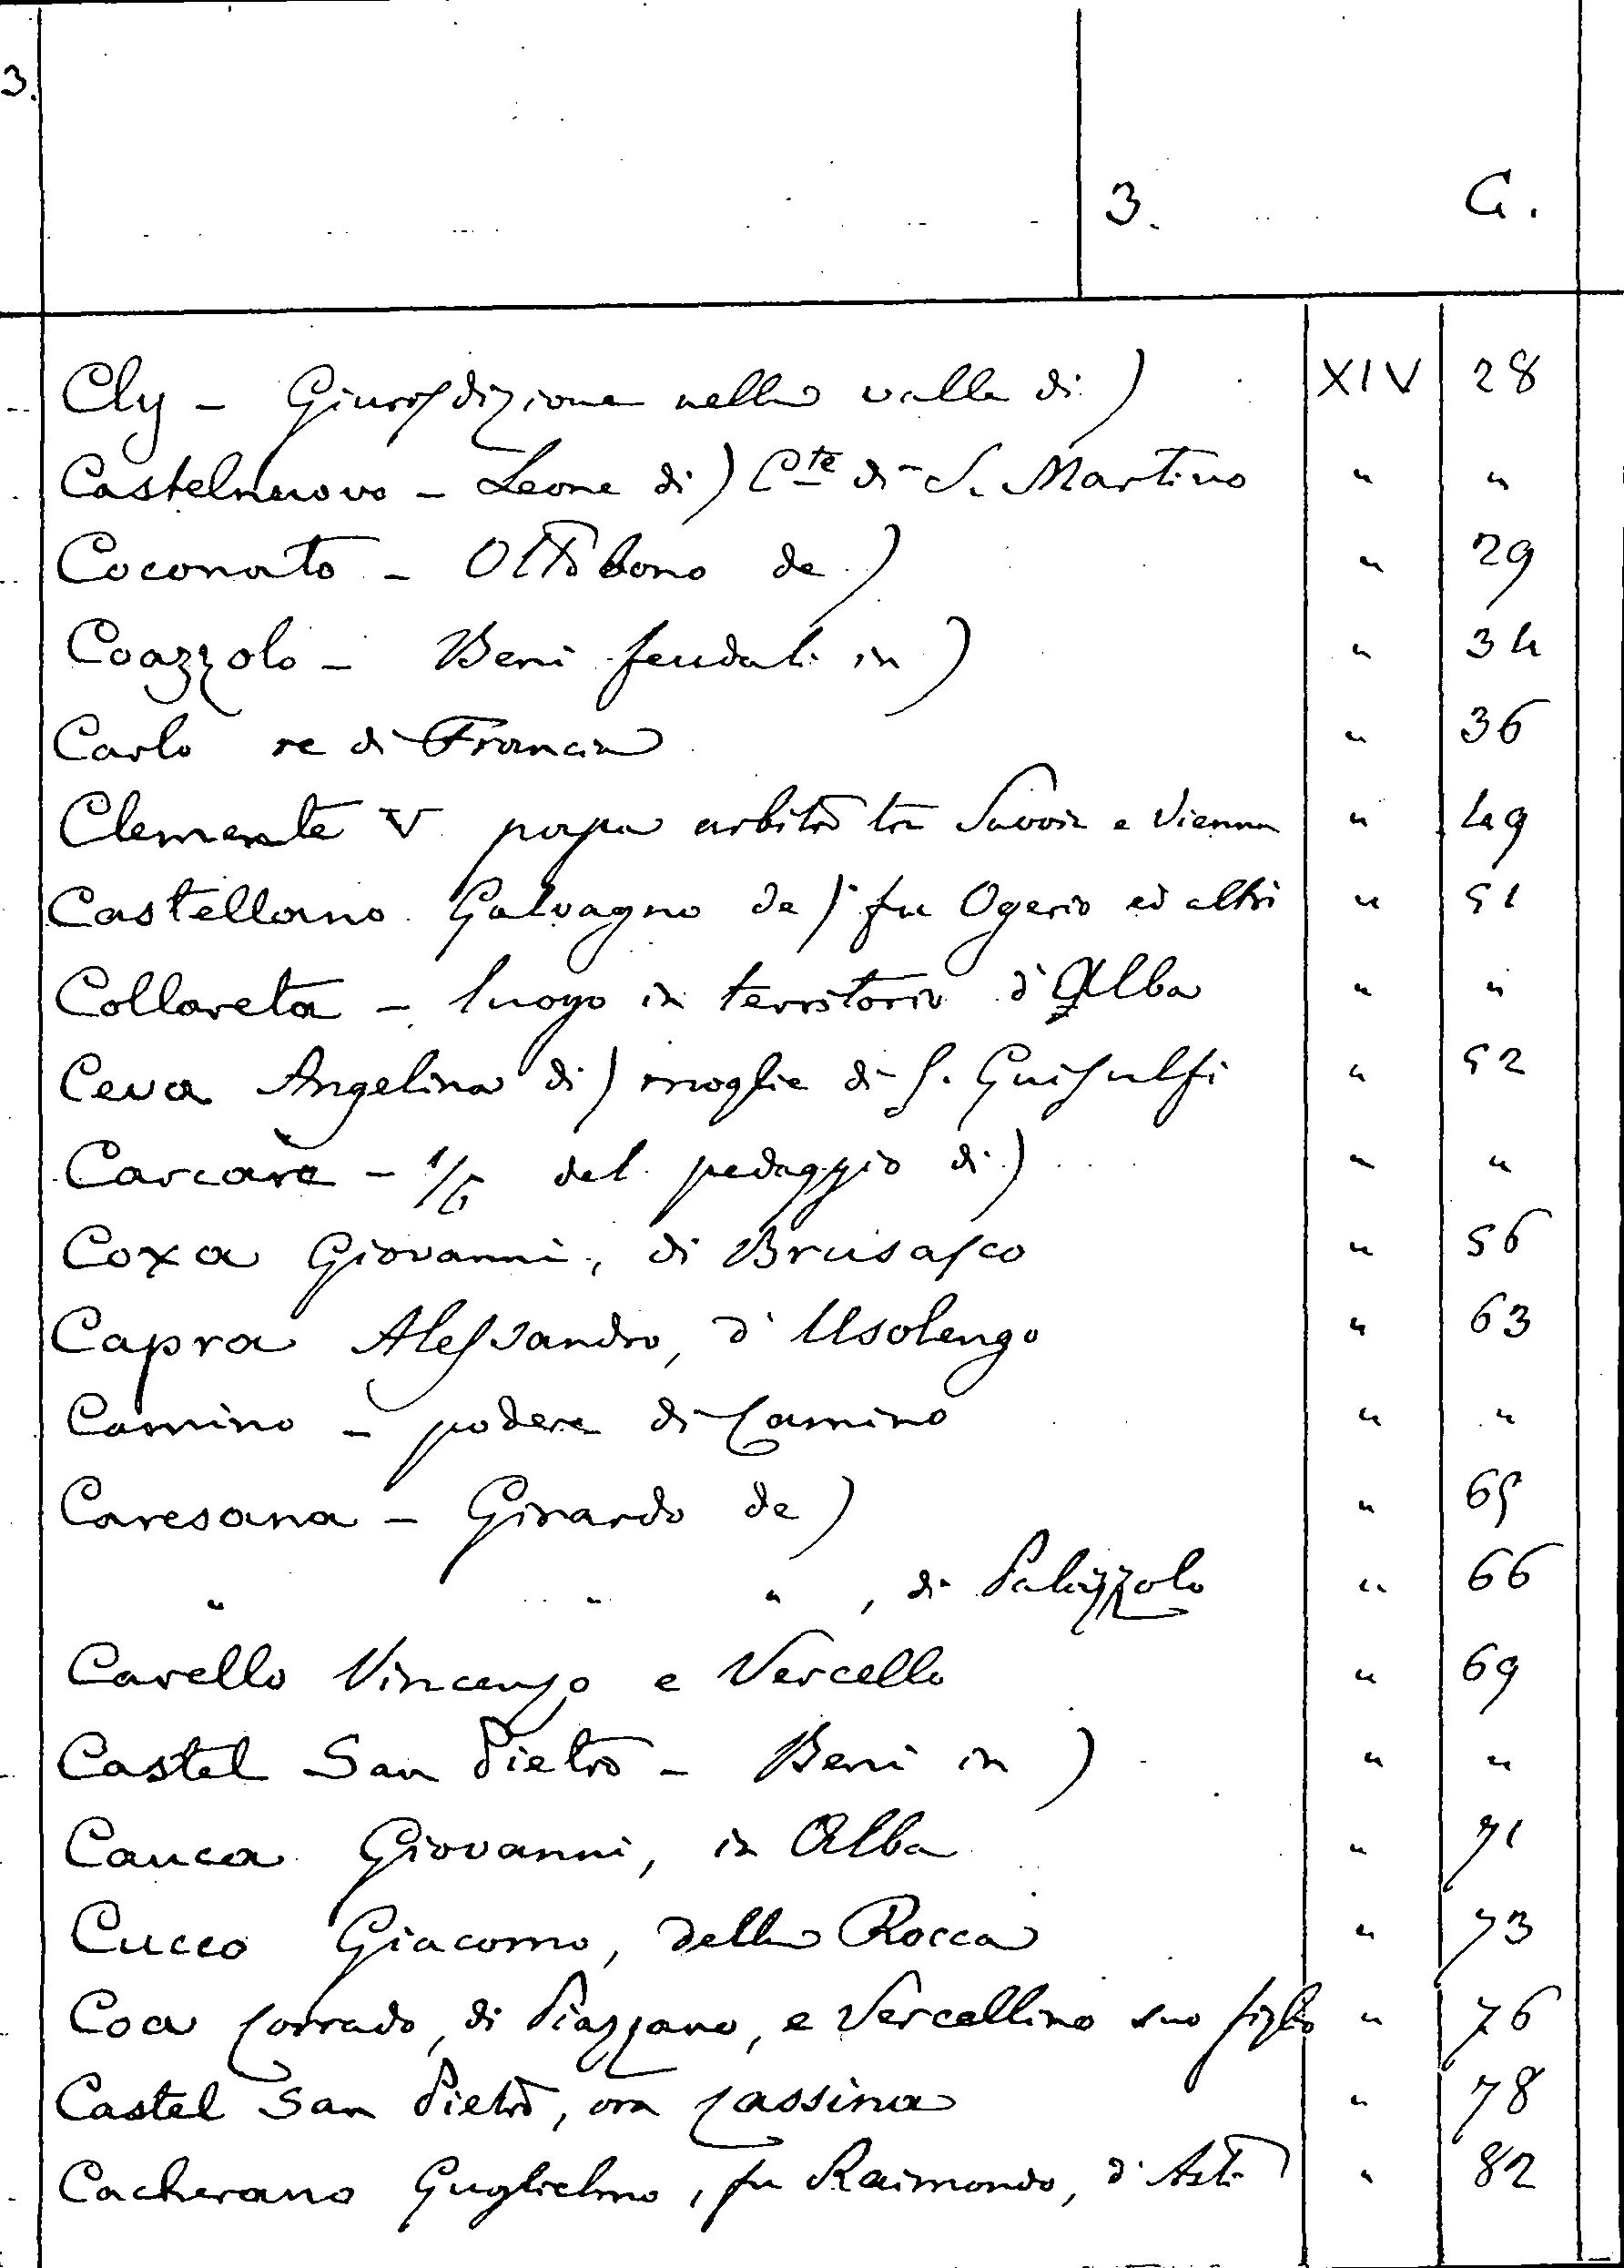 3.
3. C.
Cly - Giurisdizione nella valle di) XIV 28
Castelnuovo - Leone di) Cte di S. Martino " "
Coconato - Ottobono de) " 29
Coazzolo - Beni feudali in) " 34
Carlo re di Francia " 36
Clemente V papa arbitro tra Savoia e Vienna " 49
Castellano Galvagno de) fu Ogerio ed altri " 51
Collareta - luogo in territorio d'Alba " "
Ceva Angelina di) moglie di G. Guisulfi " 52
Carcare - 1/6 del pedaggio di) " "
Coxa Giovanni, di Brusasco " 56
Capra Alessandro, d'Usolengo " 63
Camino - podere di Camino " "
Caresana - Girardo de) " 65
" " " , di Palazzolo " 66
Carello Vincenzo e Vercello " 69
Castel San Pietro - Beni in) " "
Cauca Giovanni, in Alba " 71
Cucco Giacomo, della Rocca " 73
Coa Corrado, di Piazzano, e Vercellino suo figlio " 76
Castel San Pietro, ora Cassina " 78
Cacherano Guglielmo, fu Raimondo, d'Asti " 82